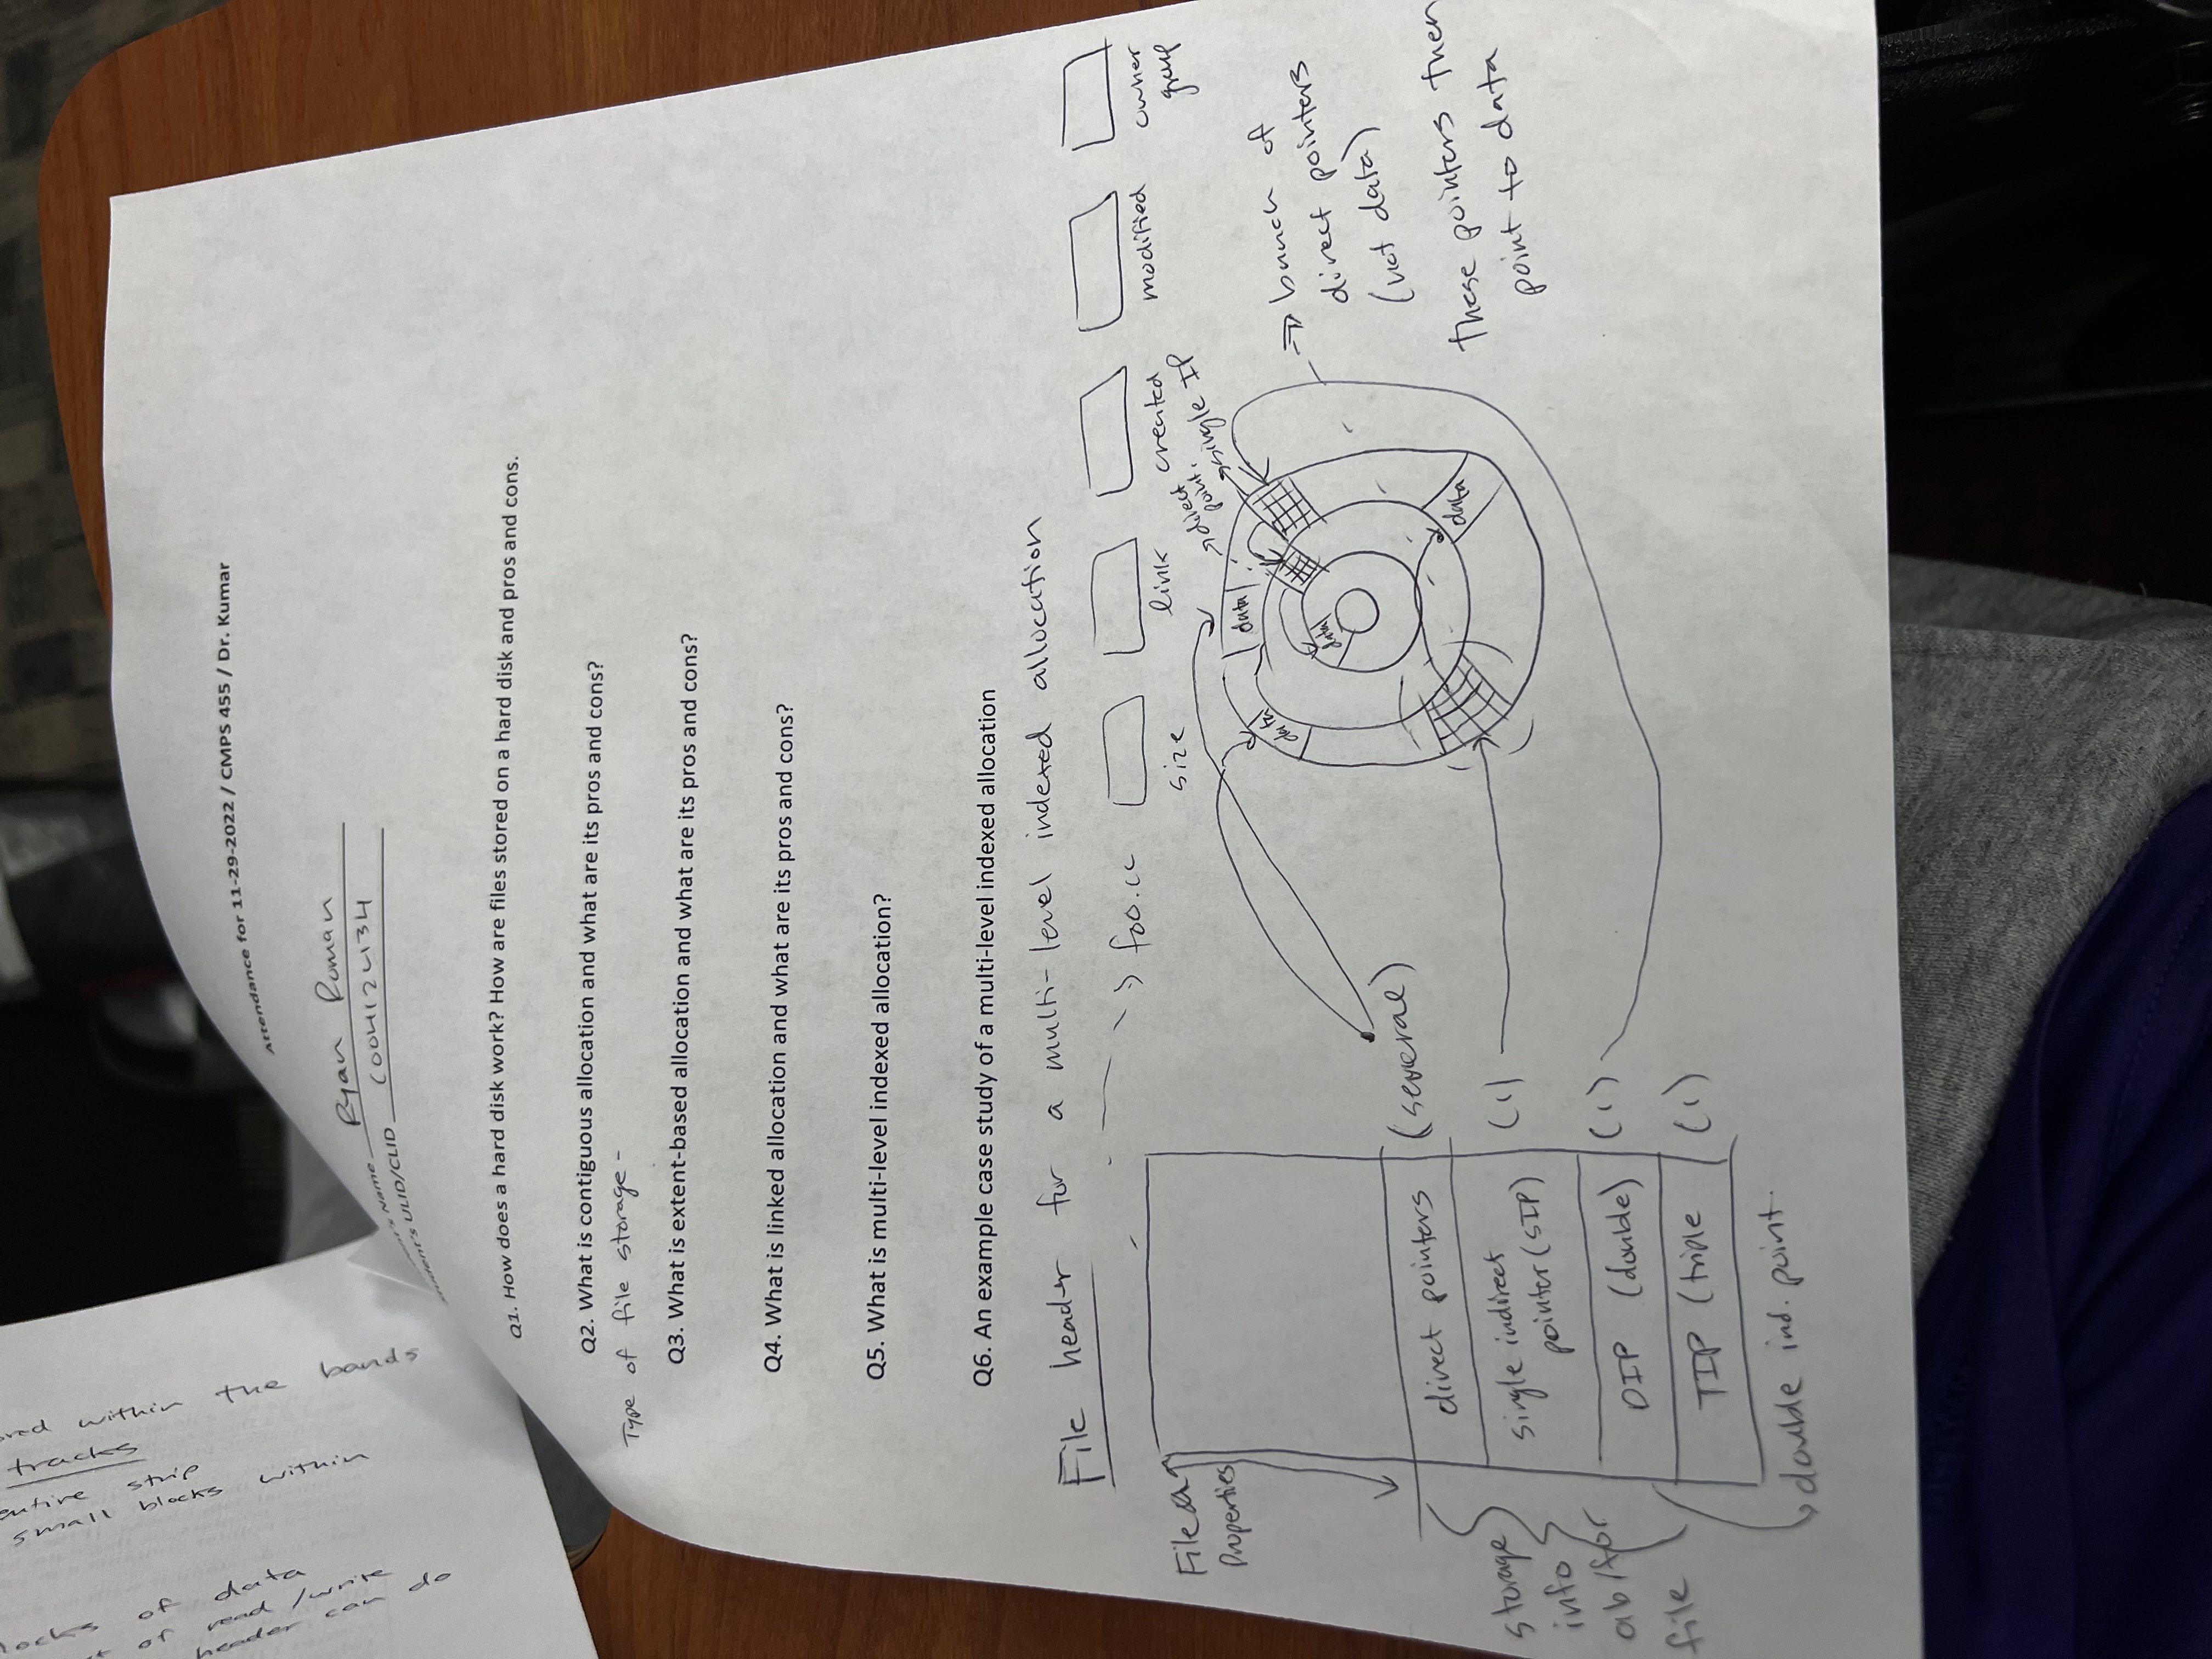 Attendance for 11-29-2022 / CMPS 455 / Dr. Kumar
Name Ryan Roman
ULID/CLID C00412434
Q1. How does a hard disk work? How are files stored on a hard disk and pros and cons.
Q2. What is contiguous allocation and what are its pros and cons?
Type of file storage -
Q3. What is extent-based allocation and what are its pros and cons?
Q4. What is linked allocation and what are its pros and cons?
Q5. What is multi-level indexed allocation?
Q6. An example case study of a multi-level indexed allocation
File header for a multi-level indexed allocation
foo.cc
size
link
created
modified
owner
group
File
Properties
direct point.
single IP
data
data
data
data
→ bunch of
direct pointers
(not data)
These pointers then
point to data
direct pointers (several)
single indirect
pointer (SIP) (1)
DIP (double) (1)
TIP (triple (1)
storage
info
ab/for
file
double ind. point.
within the bands
tracks
entire strip
small blocks within
of data
of read/write
header can do